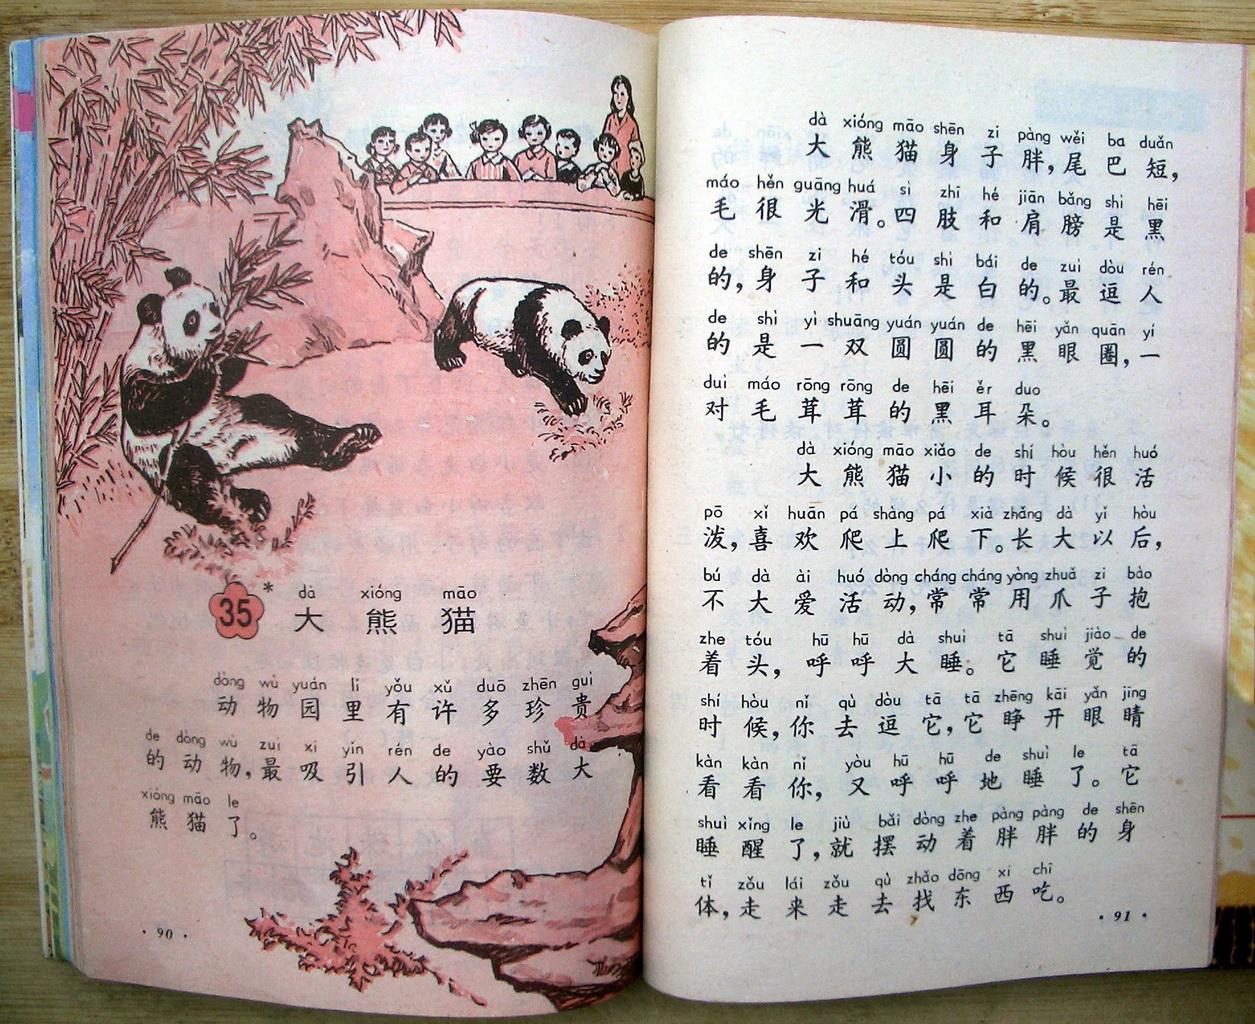 dà xióng māo
35* 大熊猫
dòng wù yuán lǐ yǒu xǔ duō zhēn guì
动物园里有许多珍贵
de dòng wù zuì xī yǐn rén de yào shǔ dà
的动物，最吸引人的要数大
xióng māo le
熊猫了。
· 90 ·
dà xióng māo shēn zi pàng wěi ba duǎn
大熊猫身子胖，尾巴短，
máo hěn guāng huá sì zhī hé jiān bǎng shì hēi
毛很光滑。四肢和肩膀是黑
de shēn zi hé tóu shì bái de zuì dòu rén
的，身子和头是白的。最逗人
de shì yì shuāng yuán yuán de hēi yǎn quān yí
的是一双圆圆的黑眼圈，一
duì máo rōng rōng de hēi ěr duo
对毛茸茸的黑耳朵。
dà xióng māo xiǎo de shí hòu hěn huó
大熊猫小的时候很活
pō xǐ huān pá shàng pá xià zhǎng dà yǐ hòu
泼，喜欢爬上爬下。长大以后，
bú dà ài huó dòng cháng cháng yòng zhuǎ zi bào
不大爱活动，常常用爪子抱
zhe tóu hū hū dà shuì tā shuì jiào de
着头，呼呼大睡。它睡觉的
shí hòu nǐ qù dòu tā tā zhēng kāi yǎn jīng
时候，你去逗它，它睁开眼睛
kàn kàn nǐ yòu hū hū de shuì le tā
看看你，又呼呼地睡了。它
shuì xǐng le jiù bǎi dòng zhe pàng pàng de shēn
睡醒了，就摆动着胖胖的身
tǐ zǒu lái zǒu qù zhǎo dōng xi chī
体，走来走去找东西吃。
· 91 ·